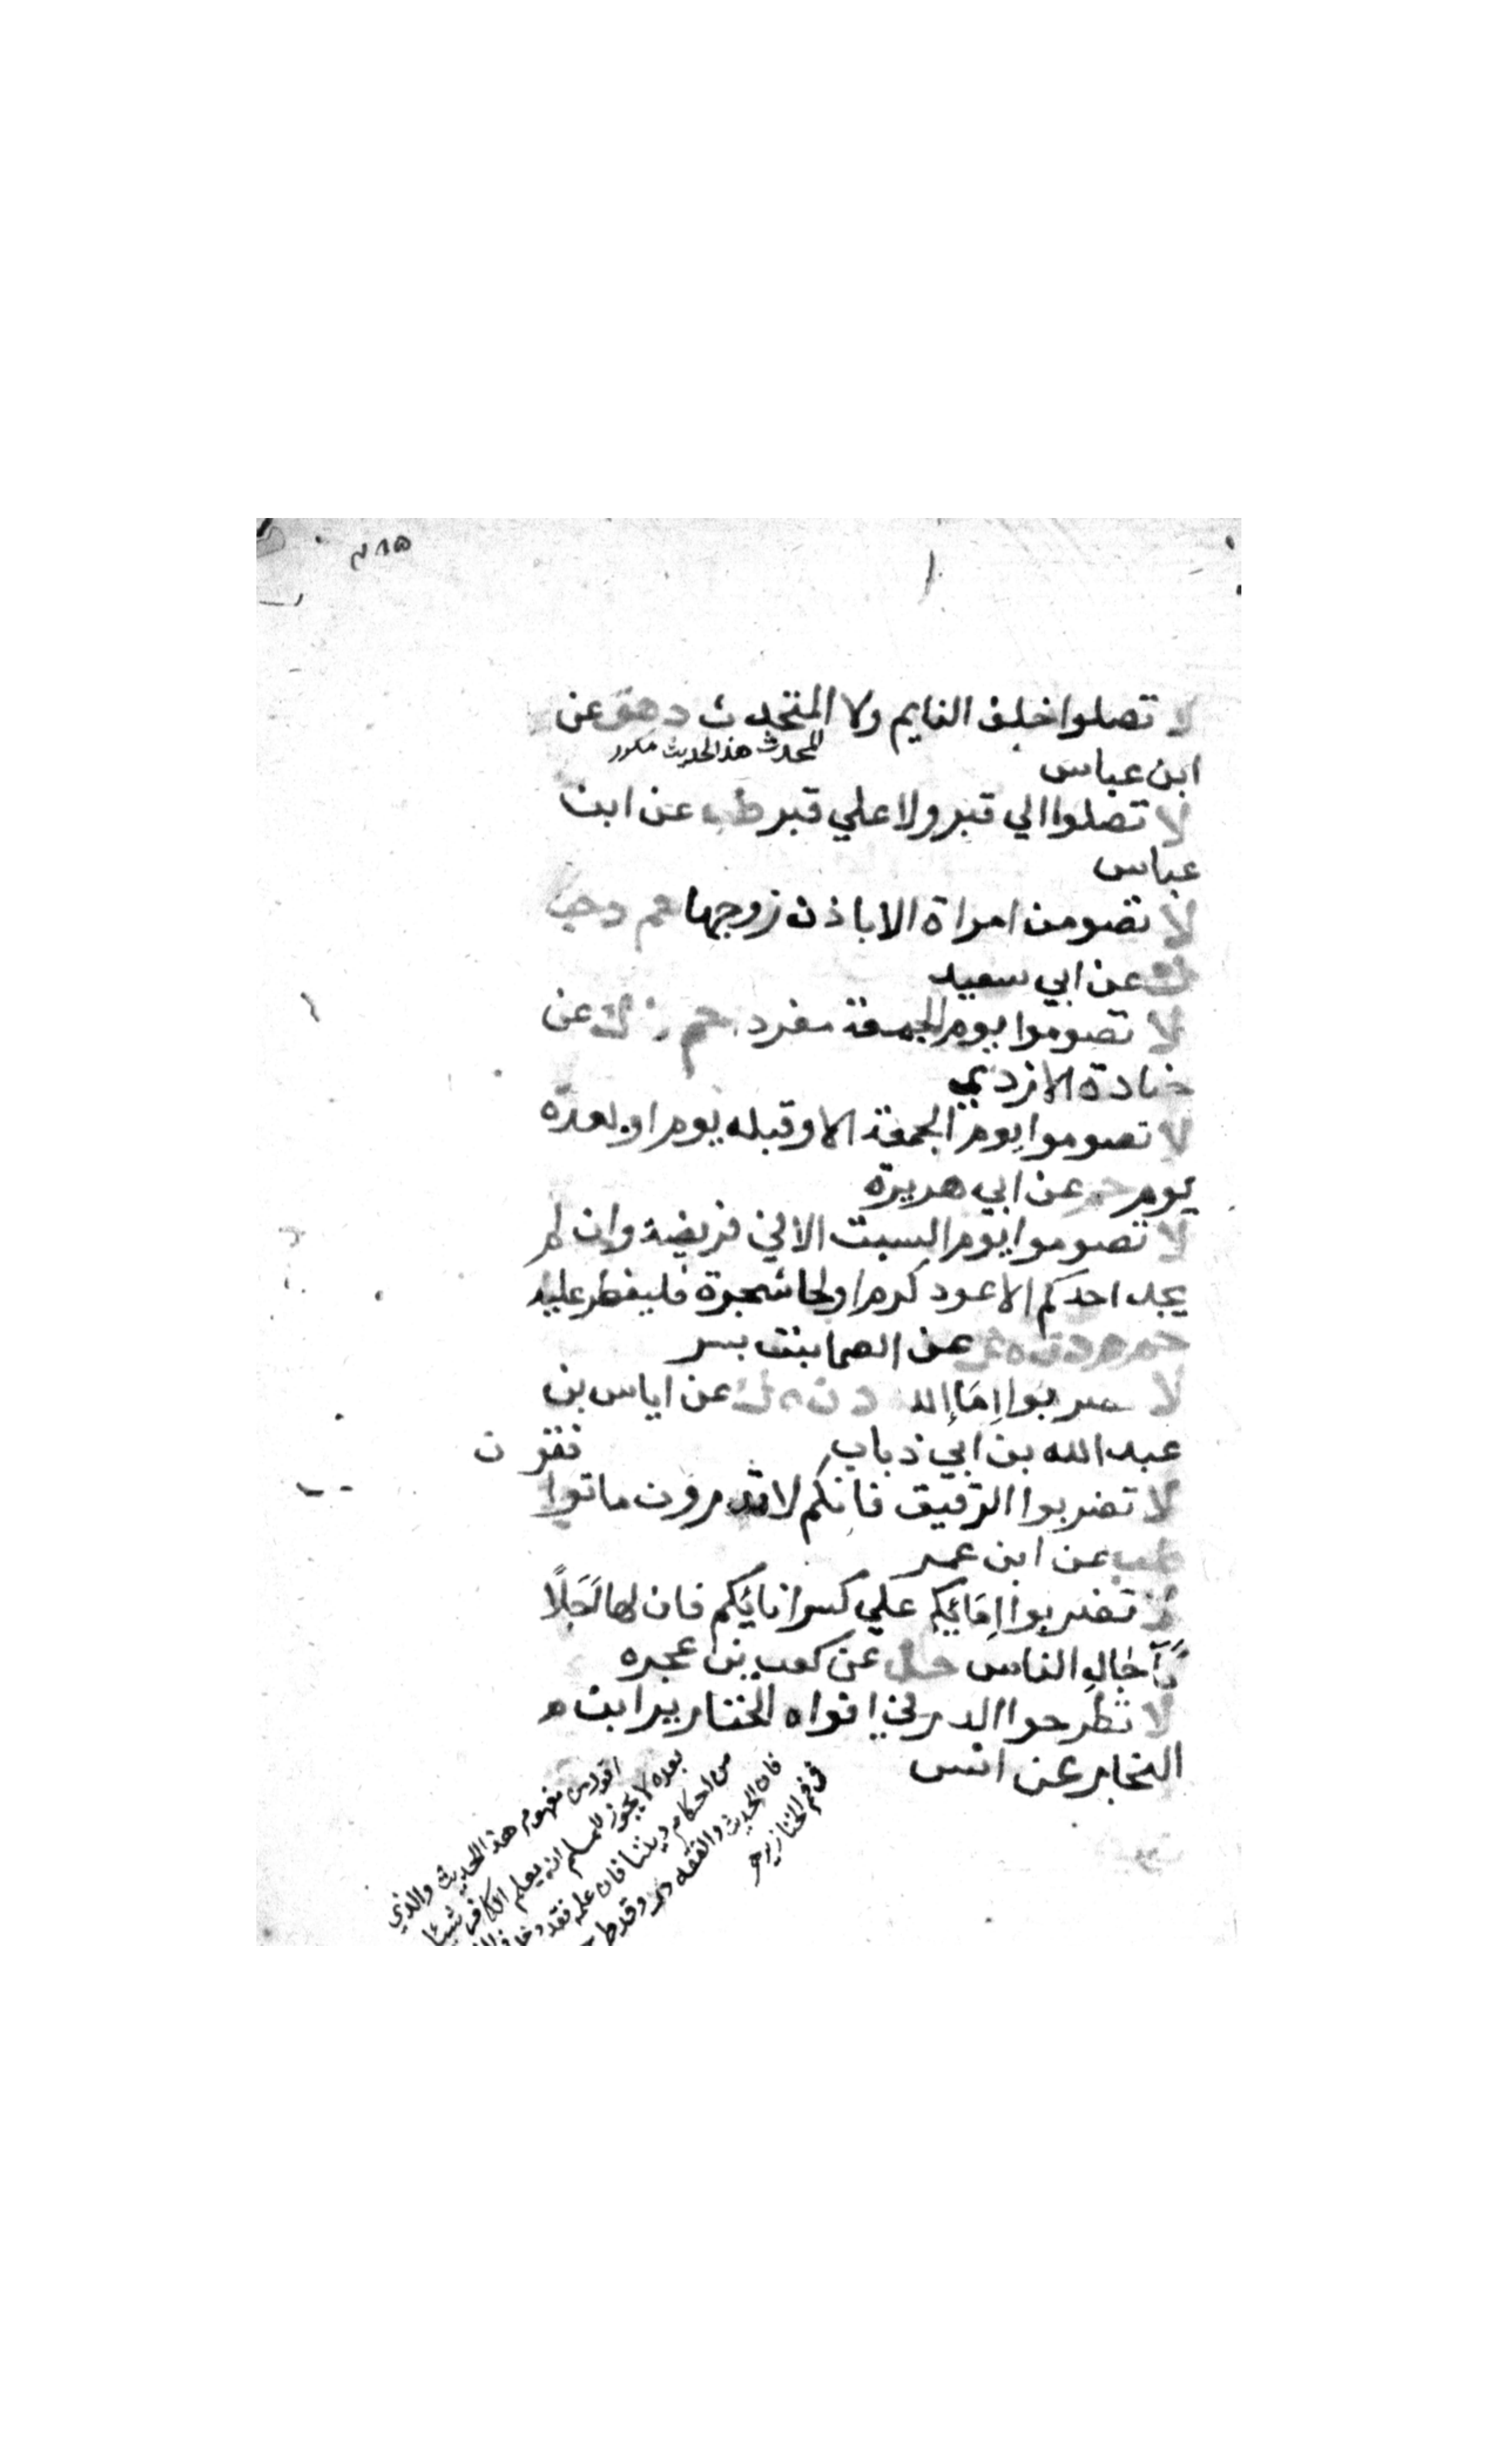 لا تصلوا خلف النايم ولا المتحدث د هق عن
المحدث هذا الحديث مكرر
ابن عباس
لا تصلوا الي قبر ولا علي قبر طب عن ابن
عباس
لا تصومن امراة الا باذن زوجها حم د حب
ك عن ابي سعيد
لا تصوموا يوم الجمعة مفردا حم ن ك عن
جنادة الازدي
لا تصوموا يوم الجمعة الا وقبله يوم او بعده
يوم حم عن ابي هريرة
لا تصوموا يوم السبت الا في فريضة وان لم
يجد احدكم الا عود كرم او لحا شجرة فليفطر عليه
حم د ت ه ك عن الصما بنت بسر
لا تضربوا اِمَاءَ الله د ن ه ك عن اياس بن
عبد الله بن ابي ذباب
لا تضربوا الرقيق فانكم لا تدرون ما توا
طب عن ابن عمر
لا تضربوا اِمَائِكم علي كسر انائِكم فان لها اَجَلًا
كآجالِ الناس حل عن كعب بن عجره
لا تطرحوا الدر في افواه الخنازير ابن
النجار عن انس
اقول من مفهوم هذا الحديث والذي
بعده لا يجوز للمسلم ان يعلم الكافر شيئا
من احكام ديننا فان علمه فقد دخل في
فان الحديث والفقه در وقد طرحه
في فم الخنازير